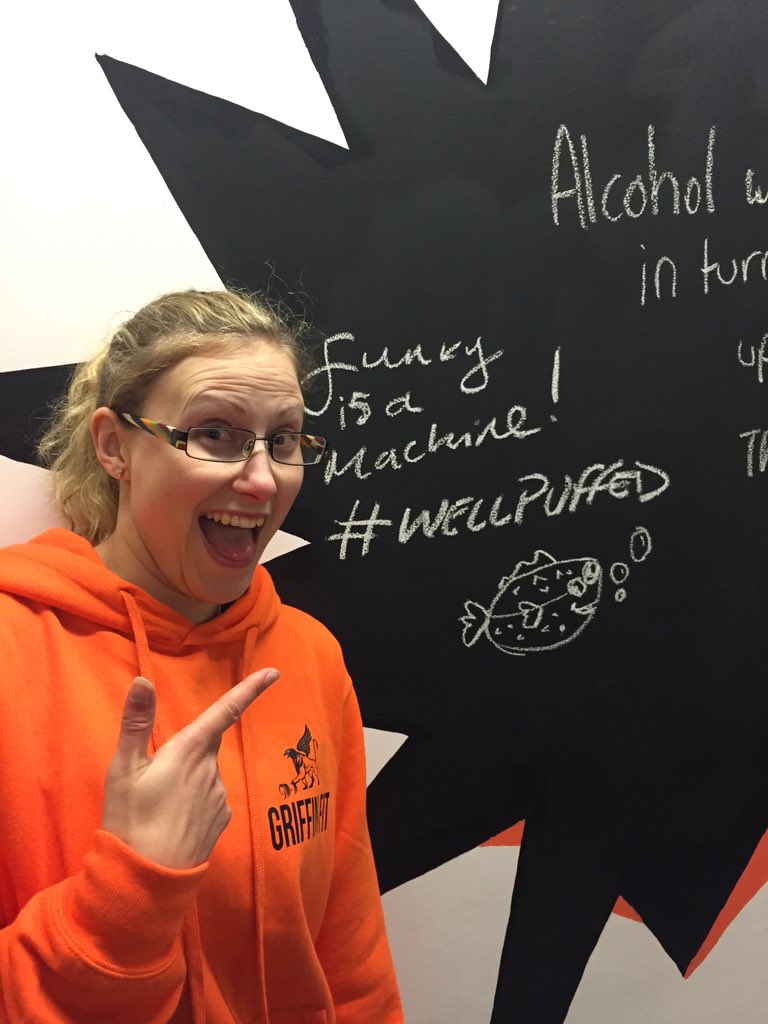 Alcohol
in
funky
is a
Machine!
#WELLPUFFED
GRIFFINFIT